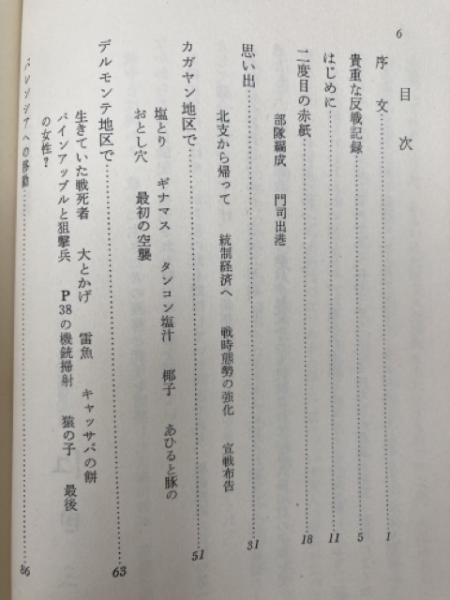 6
目次
序文……1
貴重な反戦記録……5
はじめに……11
二度目の赤紙……18
部隊編成 門司出港
思い出……31
北支から帰って 統制経済へ 戦時態勢の強化 宣戦布告
カガヤン地区で……51
塩とり ギナマス タンコン塩汁 椰子 あひると豚の
おとし穴 最初の空襲
デルモンテ地区で……63
生きていた戦死者 大とかげ 雷魚 キャッサバの餅
パインアップルと狙撃兵 P38の機銃掃射 猿の子 最後
の女性?
への移動……86